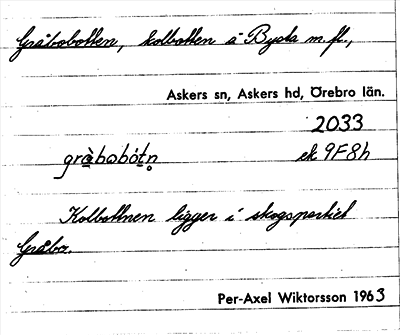 Gråbobotten, kolbotten å Bysta m. fl.,
Askers sn, Askers hd, Örebro län.
2033
gràbobót̥n ek 9F8h
Kolbottnen ligger i skogspartiet
Gråbo.
Per-Axel Wiktorsson 1963